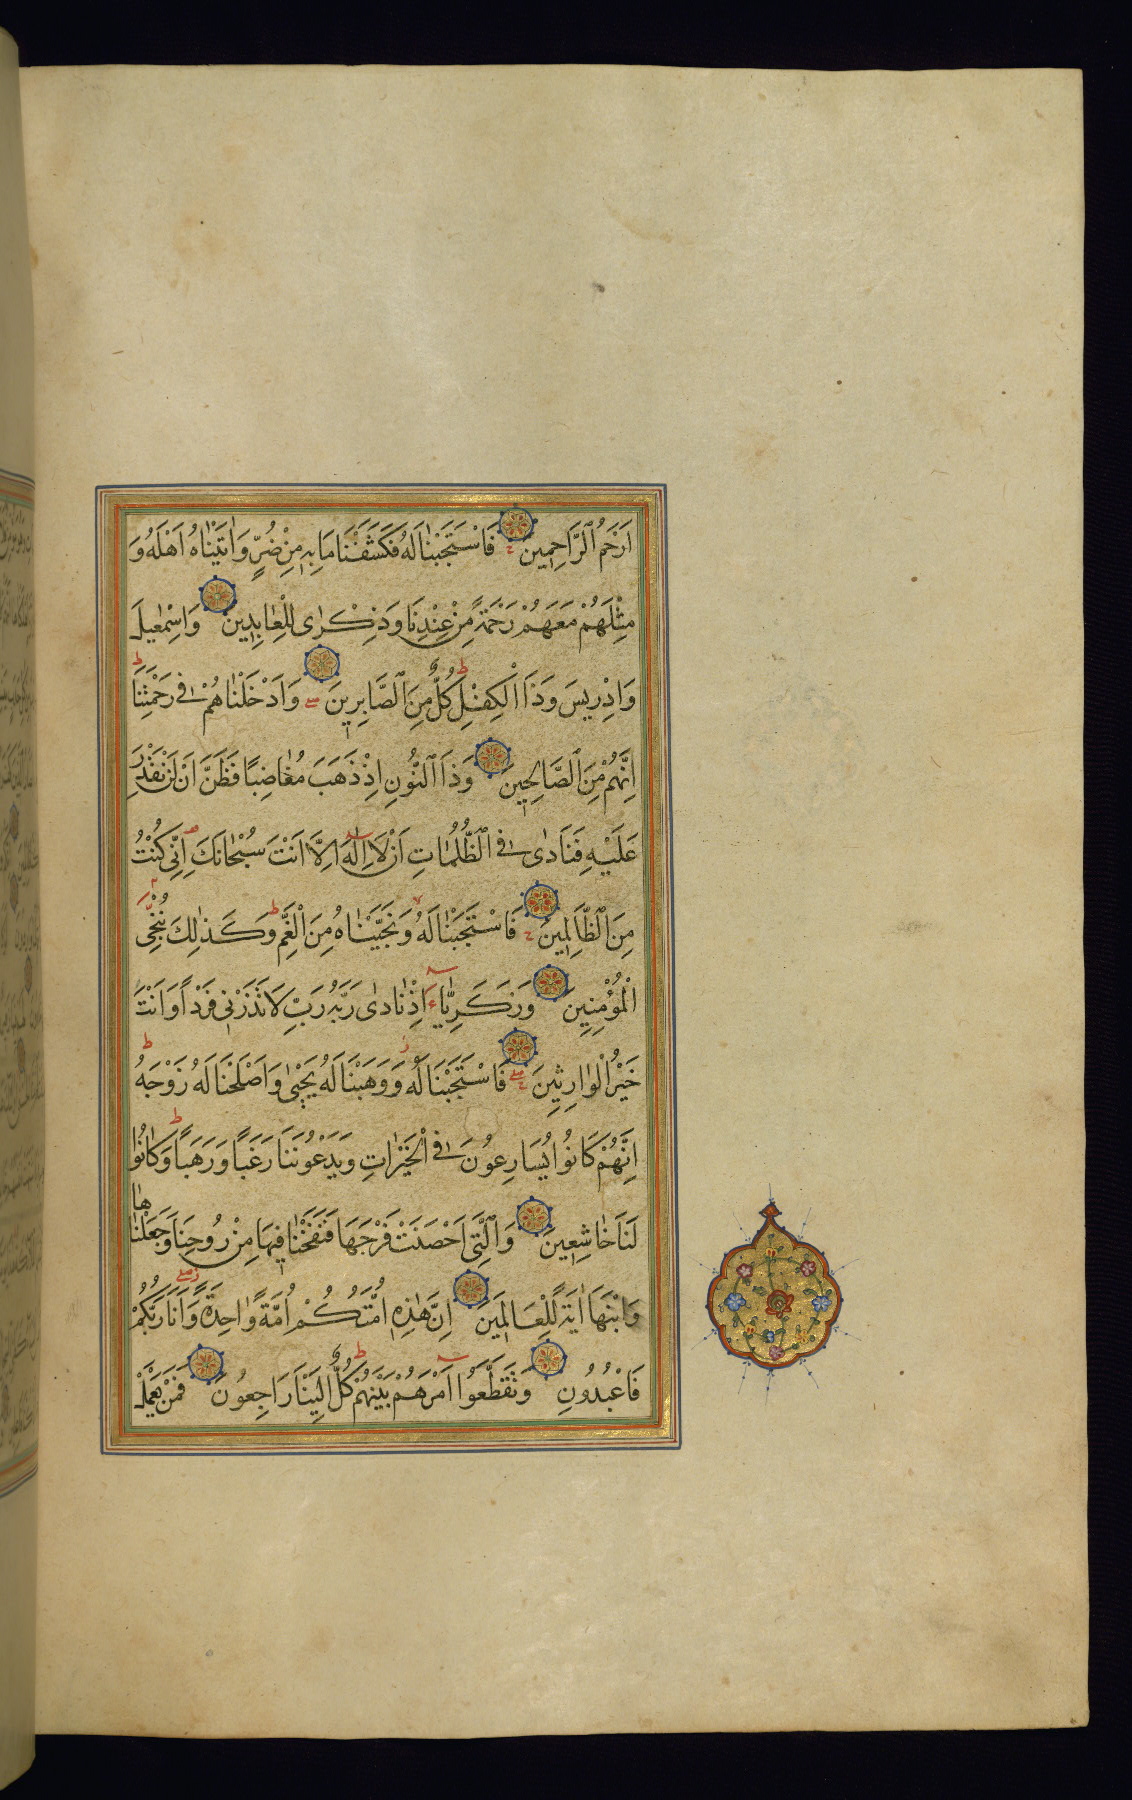 اَرْحَمُ الرَّاحِمِينَ فَاسْتَجَبْنَا لَهُ فَكَشَفْنَا مَا بِهِ مِنْ ضُرٍّ وَاٰتَيْنَاهُ اَهْلَهُ وَ
مِثْلَهُمْ مَعَهُمْ رَحْمَةً مِنْ عِنْدِنَا وَذِكْرٰى لِلْعَابِدِينَ وَاِسْمٰعِيلَ
وَاِدْرِيسَ وَذَا الْكِفْلِ كُلٌّ مِنَ الصَّابِرِينَ وَاَدْخَلْنَاهُمْ فِى رَحْمَتِنَا
اِنَّهُمْ مِنَ الصَّالِحِينَ وَذَا النُّونِ اِذْ ذَهَبَ مُغَاضِبًا فَظَنَّ اَنْ لَنْ نَقْدِرَ
عَلَيْهِ فَنَادٰى فِى الظُّلُمَاتِ اَنْ لَا اِلٰهَ اِلَّا اَنْتَ سُبْحَانَكَ اِنِّى كُنْتُ
مِنَ الظَّالِمِينَ فَاسْتَجَبْنَا لَهُ وَنَجَّيْنَاهُ مِنَ الْغَمِّ وَكَذٰلِكَ نُنْجِى
الْمُؤْمِنِينَ وَزَكَرِيَّاءَ اِذْ نَادٰى رَبَّهُ رَبِّ لَا تَذَرْنِى فَرْدًا وَاَنْتَ
خَيْرُ الْوَارِثِينَ فَاسْتَجَبْنَا لَهُ وَوَهَبْنَا لَهُ يَحْيٰى وَاَصْلَحْنَا لَهُ زَوْجَهُ
اِنَّهُمْ كَانُوا يُسَارِعُونَ فِى الْخَيْرَاتِ وَيَدْعُونَنَا رَغَبًا وَرَهَبًا وَكَانُوا
لَنَا خَاشِعِينَ وَالَّتِى اَحْصَنَتْ فَرْجَهَا فَنَفَخْنَا فِيهَا مِنْ رُوحِنَا وَجَعَلْنَاهَا
وَابْنَهَا اٰيَةً لِلْعَالَمِينَ اِنَّ هٰذِهِ اُمَّتُكُمْ اُمَّةً وَاحِدَةً وَاَنَا رَبُّكُمْ
فَاعْبُدُونِ وَتَقَطَّعُوا اَمْرَهُمْ بَيْنَهُمْ كُلٌّ اِلَيْنَا رَاجِعُونَ فَمَنْ يَعْمَلْ